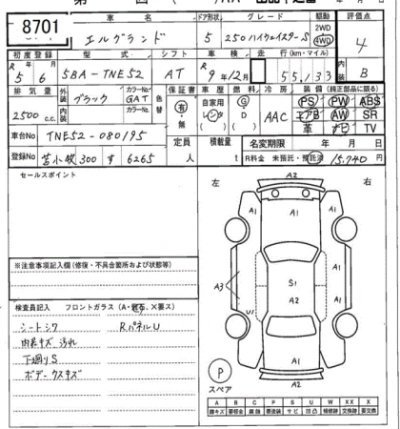 8701
車名 ドア形状 グレード 駆動 評価点
エルグランド 5 250ハイウェイスターS 2WD 4WD 4
初度登録 型式 シフト 車検 走行(km・マイル) 内装
R 5年 6月 5BA-TNE52 AT R 9年12月 55,133 B
排気量 外装 カラーNo 色替 保証書 車歴 燃料 冷房 装備(純正部品に限る)
2500 c.c. ブラック GAT 有・無 自家用 レンタ ( ) G D ( ) AAC PS PW ABS
内装 カラーNo エアB AW SR
革 ナビ TV
車台No TNE52-080195 定員 積載量 名変期限 年 月 日
登録No 苫小牧 300 す 6265 人 t R料金 未預託・預託済 15,740円
セールスポイント
左 右
A2
A1 A1 A1 A1
※注意事項記入欄(修復・不具合箇所および状態等)
A3 S1 A1
A2
U1 A1
検査員記入 フロントガラス(A・飛石、X要ス)
シートシワ RパネルU
内装キズ 汚れ
下廻りS
ボデークスキズ
A1
P
スペア
A2
A B C P S U W X XX